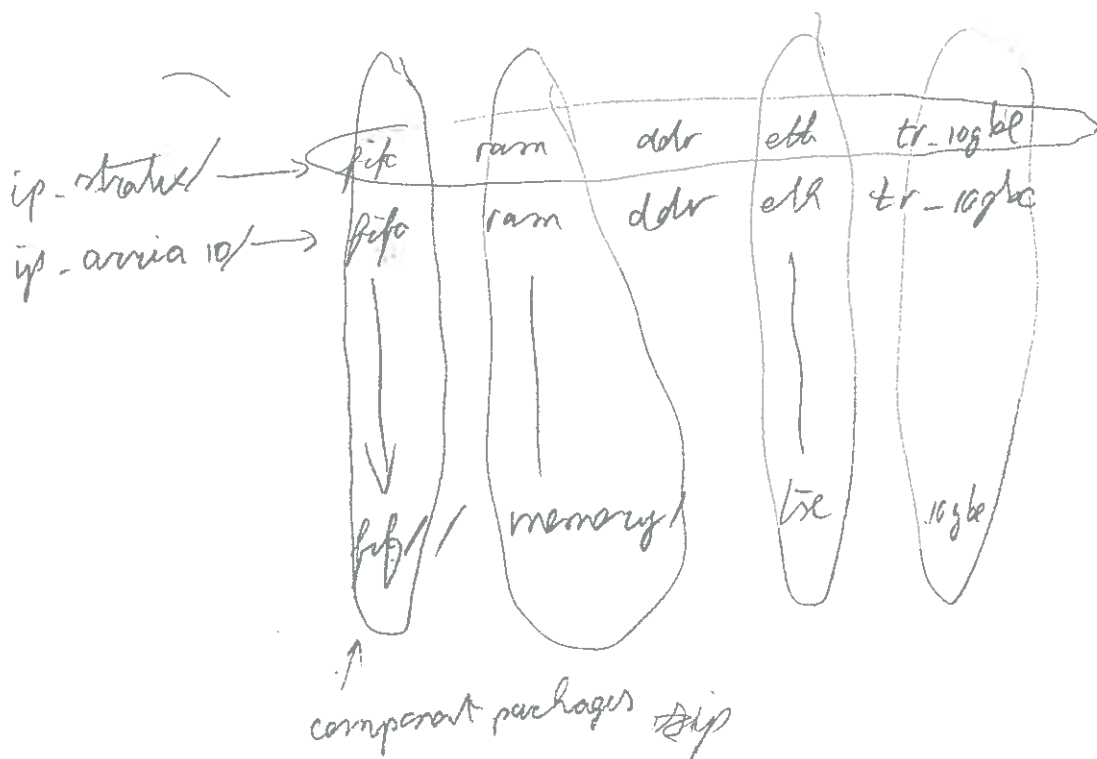 ip_stratix/ → fifo ram ddr eth tr_10gbe
ip_arria 10/ → fifo ram ddr eth tr_10gbe
fifo/ / memory/ tse 10gbe
component packages